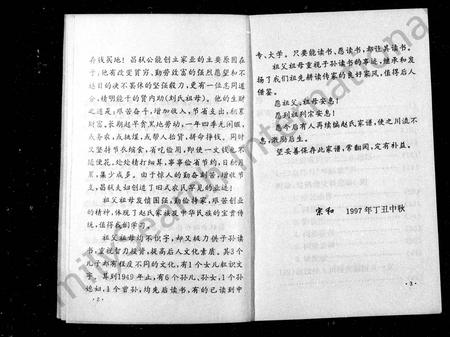 弃钱买地！昌猷公能创立家业的主要原因在
于：他有改变贫穷、勤劳致富的强烈愿望和不
达目的决不罢休的坚强毅力，更有一位志同道
合、精明能干的贤内助（刘氏祖母）。他的生财
之道是：艰苦奋斗，增加收入，节省支出，积累
财富。长期起早贪黑地劳动，一年四季无闲暇，
或务农，或挑煤，或帮人抬货，拼命挣钱。同时
又坚持节衣缩食，省吃俭用，即使一文钱也不
随便花，处处精打细算，事事俭省节约，日积月
累，集少成多。由于惊人的勤奋刻苦，增收节
支，昌猷夫妇创造了旧式农民罕见的业迹！
祖父祖母发愤图强，勤俭持家，艰苦创业的
精神，体现了赵氏家族及中华民族的宝贵传
统，值得我们学习。
祖父祖母均不识字，却又极力供子孙读
书，重视智力投资，提高后人文化素质。其3个
儿子都有程度不同的文化，有1个女儿粗识文
字。算到1949年止，有6个孙儿、孙女，1个孙
媳妇，1个曾孙，均先后读书，有的已读到中
·2·
专、大学。只要能读书、愿读书，都让其读书。
祖父祖母重视子孙读书的事迹，继承和发
扬了我们祖先耕读传家的良好家风，值得后人
借鉴。
愿祖父、祖母安息！
愿列祖列宗安息！
愿今后有人再续编赵氏家谱，使之川流不
息，激励后生。
望妥善保存此家谱，常翻阅，定有补益。
宗和 1997年丁丑中秋
·3·